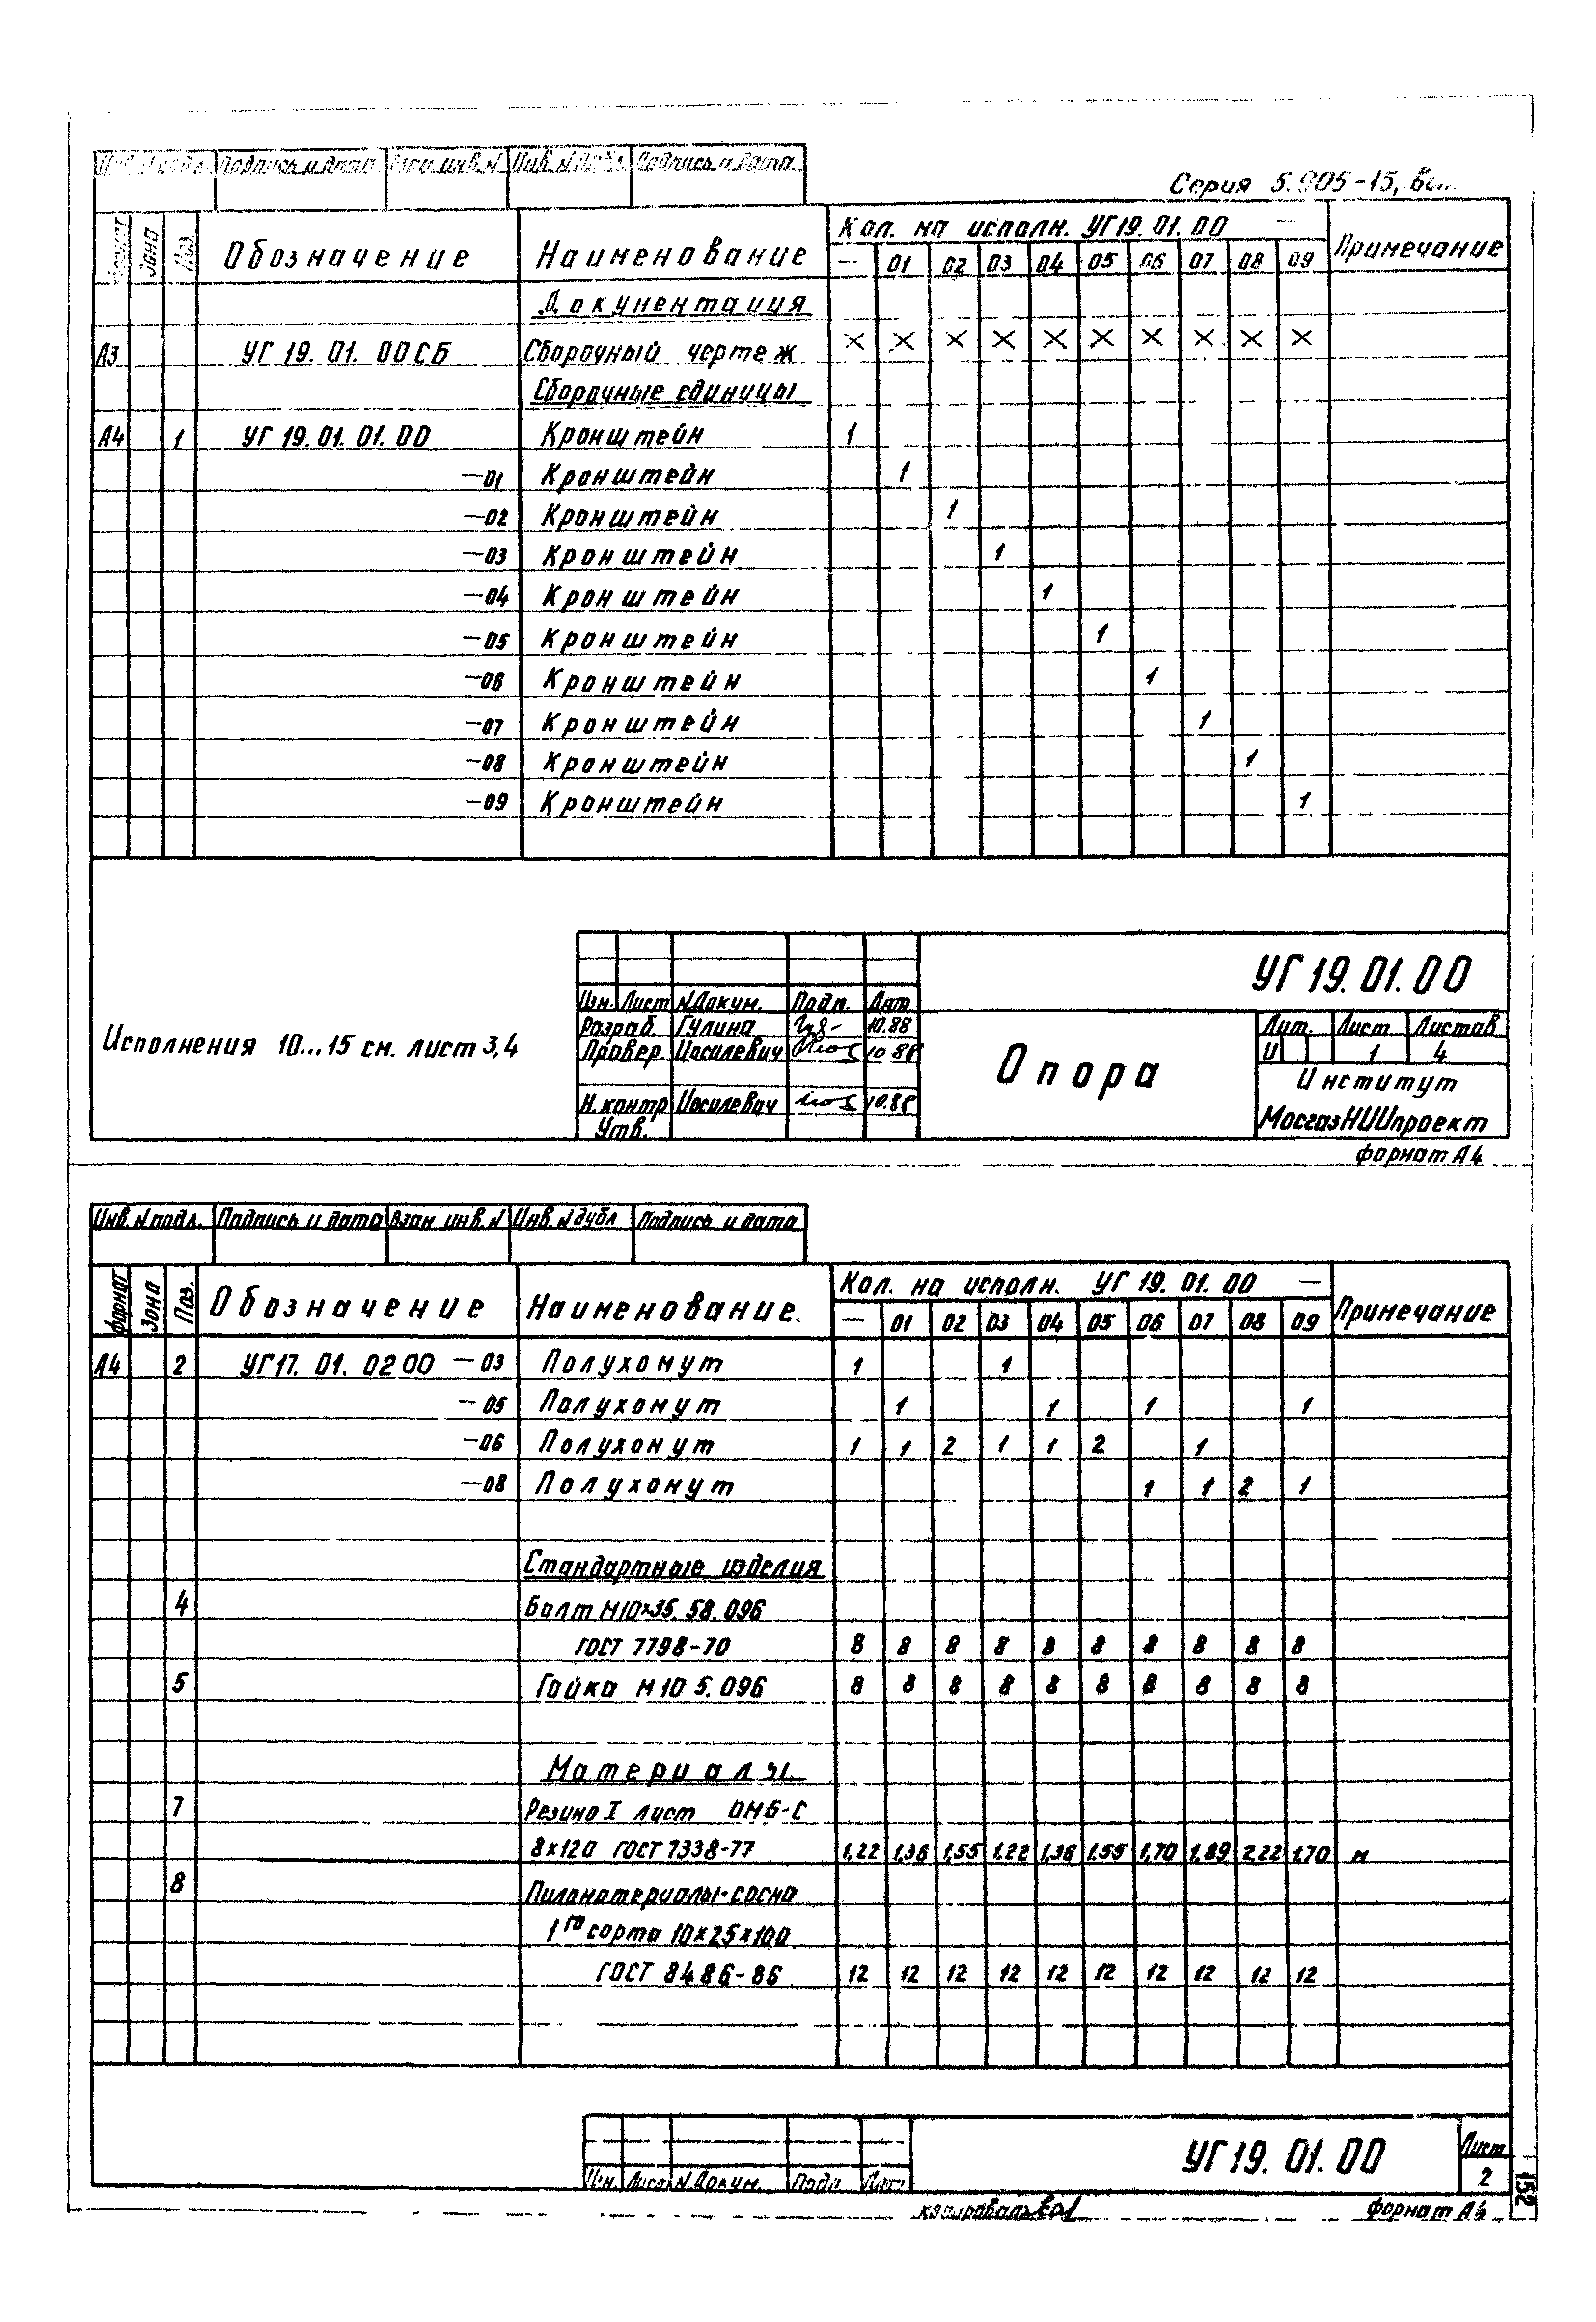 Инв. N подл. Подпись и дата Взам. инв. N Инв. N дубл. Подпись и дата
Серия 5.905-15,
Формат Зона Поз. Обозначение Наименование Кол. на исполн. УГ19.01.00 — Примечание
— 01 02 03 04 05 06 07 08 09
Документация
А3 УГ 19. 01. 00СБ Сборочный чертеж × × × × × × × × × ×
Сборочные единицы
А4 1 УГ 19.01.01.00 Кронштейн 1
—01 Кронштейн 1
—02 Кронштейн 1
—03 Кронштейн 1
—04 Кронштейн 1
—05 Кронштейн 1
—06 Кронштейн 1
—07 Кронштейн 1
—08 Кронштейн 1
—09 Кронштейн 1
Исполнения 10...15 см. лист 3,4
Изм. Лист N Докум. Подп. Дат
Разраб. Гулина 10.88
Провер. Иосилевич 10 88
Н. контр Иосилевич 10.88
Утв.
УГ19.01.00
Опора
Лит. Лист Листов
И 1 4
Институт
МосгазНИИпроект
формат А4
Инв. N подл. Подпись и дата Взам инв. N Инв. N дубл Подпись и дата
формат Зона Поз. Обозначение Наименование. Кол. на исполн. УГ 19. 01. 00 — Примечание
— 01 02 03 04 05 06 07 08 09
А4 2 УГ17. 01. 02 00 —03 Полухомут 1 1
—05 Полухомут 1 1 1 1
—06 Полухомут 1 1 2 1 1 2 1
—08 Полухомут 1 1 2 1
Стандартные изделия
4 Болт М10×35. 58. 096
ГОСТ 7798-70 8 8 8 8 8 8 8 8 8 8
5 Гайка М10 5. 096 8 8 8 8 8 8 8 8 8 8
Материалы
7 Резина I лист ОМБ-С
8×120 ГОСТ 7338-77 1,22 1,36 1,55 1,22 1,36 1,55 1,70 1,89 2,22 1,70 м
8 Пиломатериалы-сосна
1го сорта 10×25×100
ГОСТ 8486-86 12 12 12 12 12 12 12 12 12 12
Изм. Лист N Докум. Подп Дат
УГ19. 01. 00
Лист
2
152
копировал
формат А4